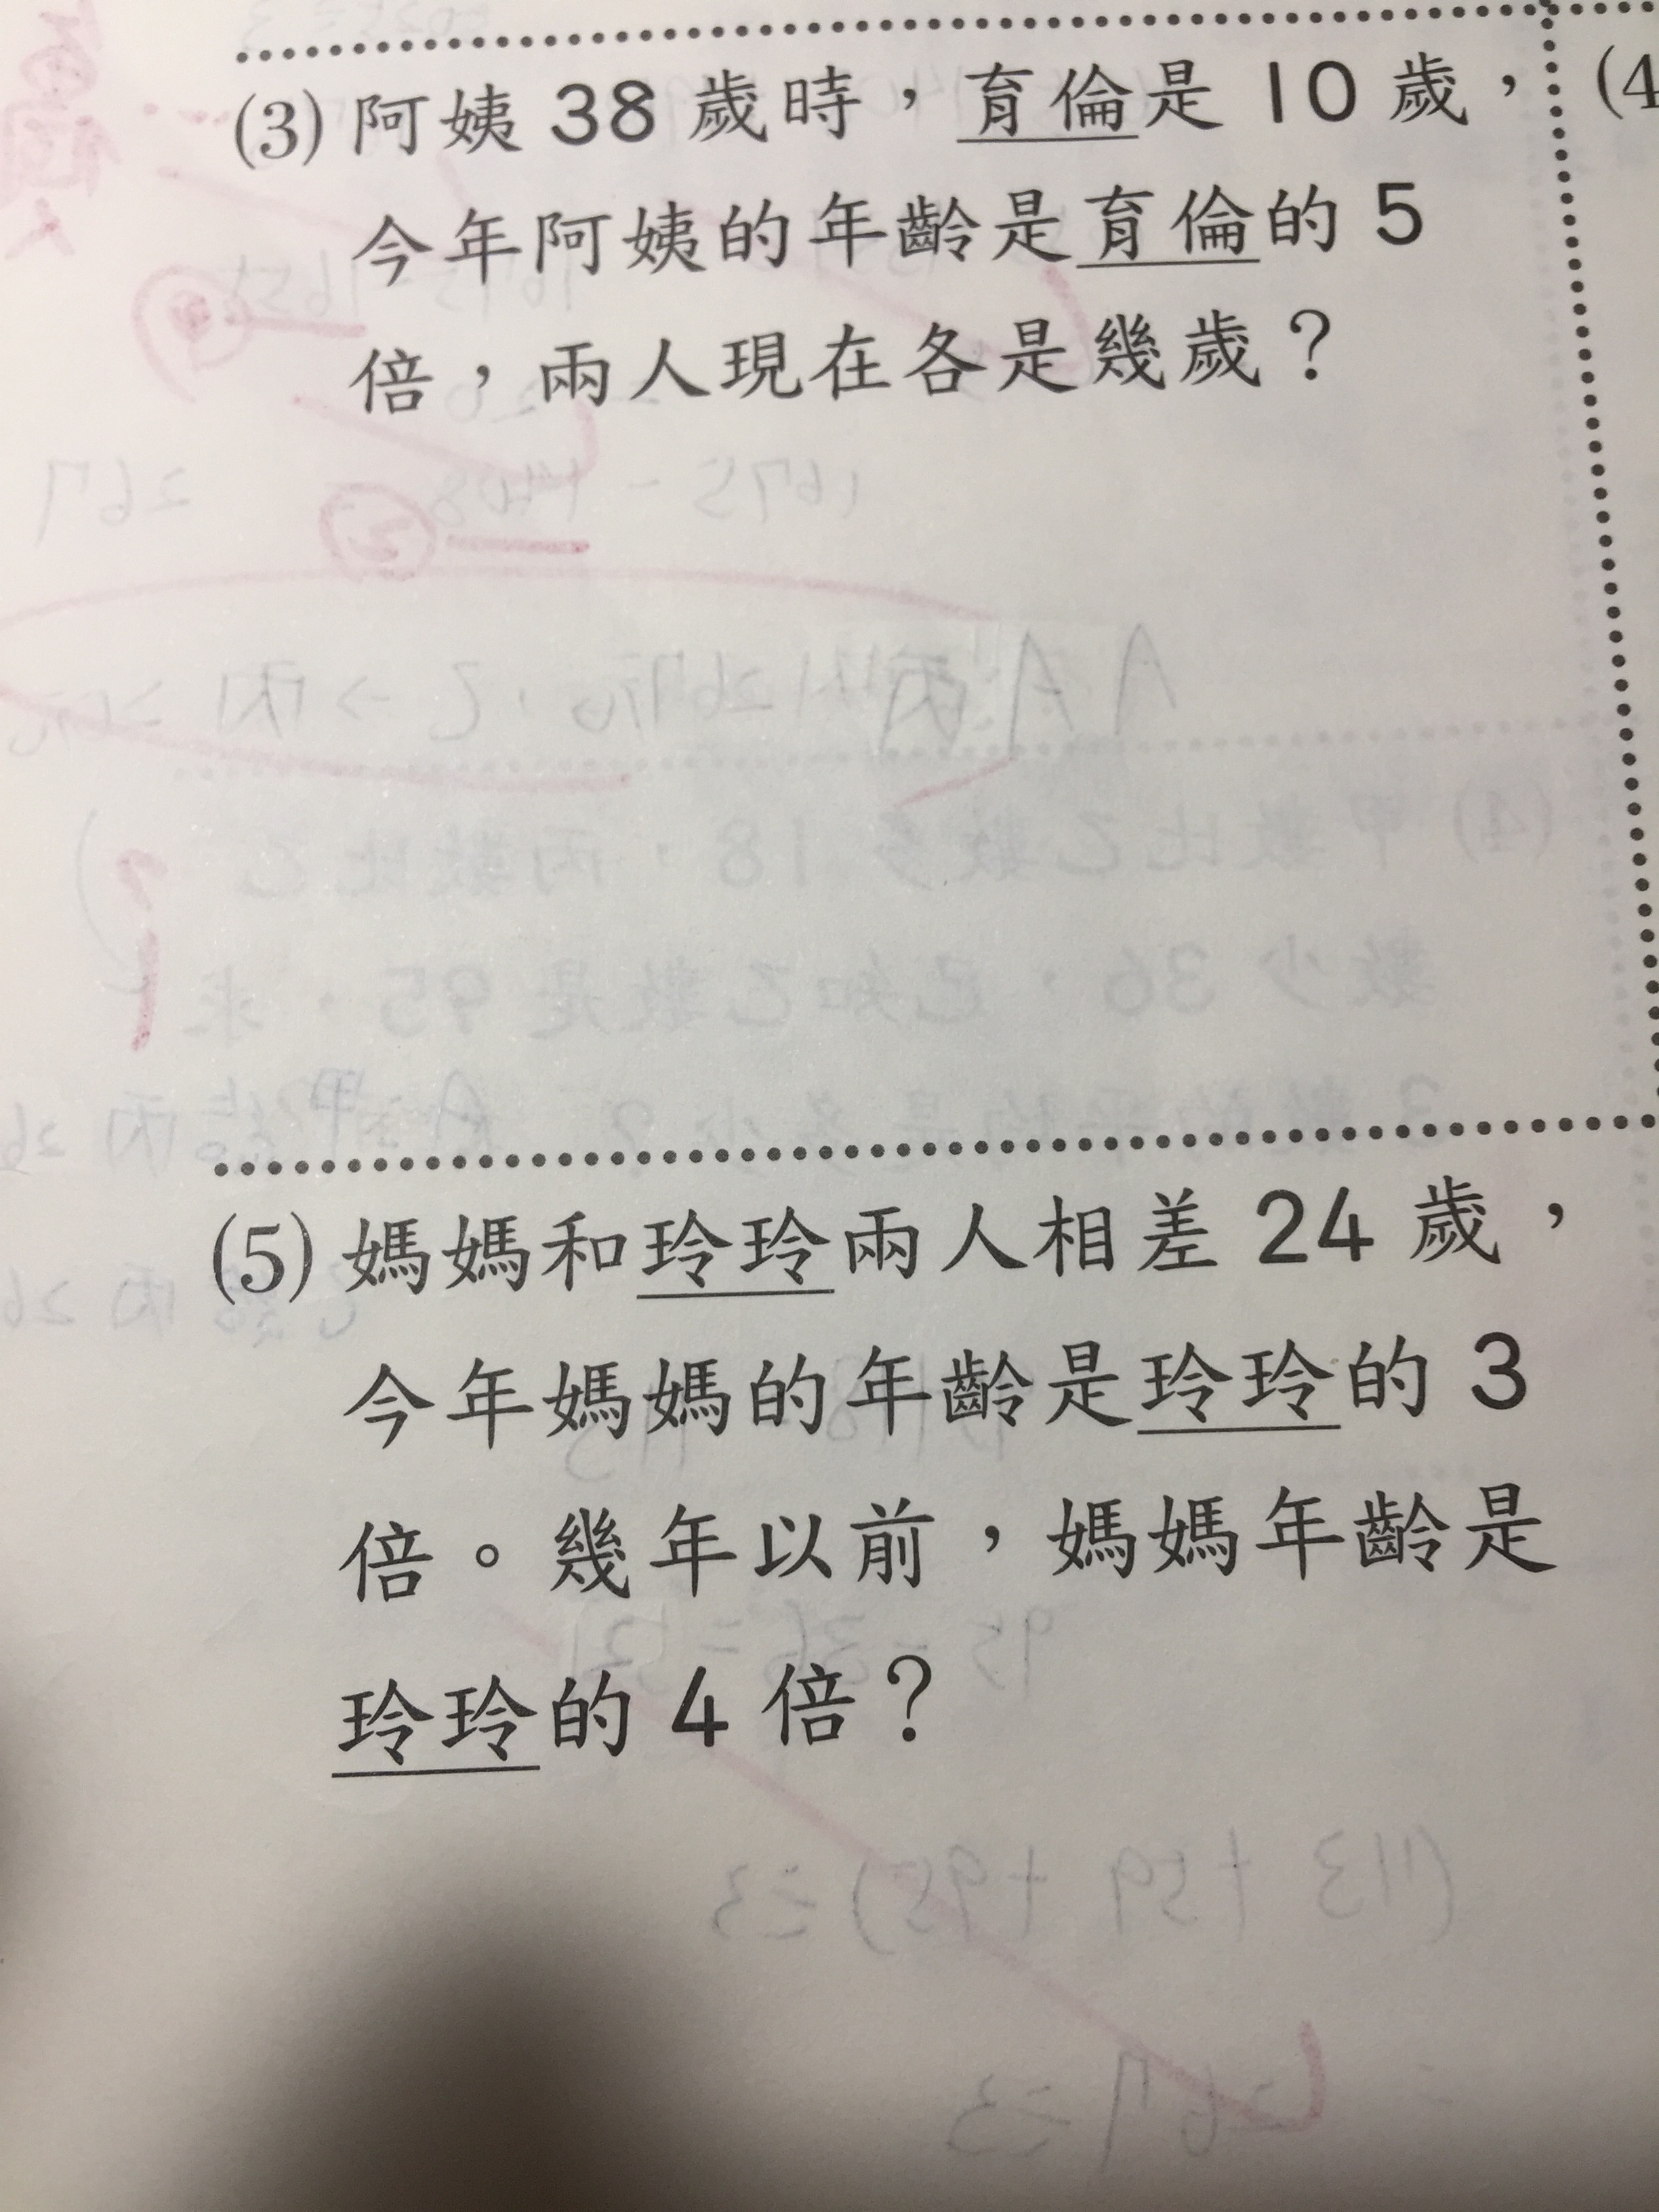 (3) 阿姨 38 歲時，育倫是 10 歲，
今年阿姨的年齡是育倫的 5
倍，兩人現在各是幾歲？
(4
(5) 媽媽和玲玲兩人相差 24 歲，
今年媽媽的年齡是玲玲的 3
倍。幾年以前，媽媽年齡是
玲玲的 4 倍？